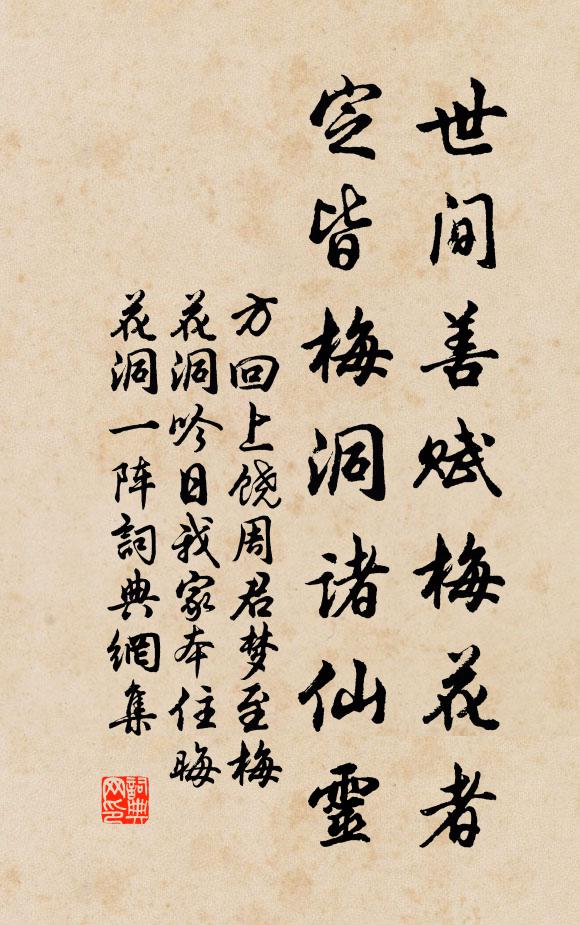 世间善赋梅花者
定皆梅洞诸仙靈
方回上饶周君梦至梅
花洞吟日我家本住晦
花洞一阵詞典網集
詞典网印